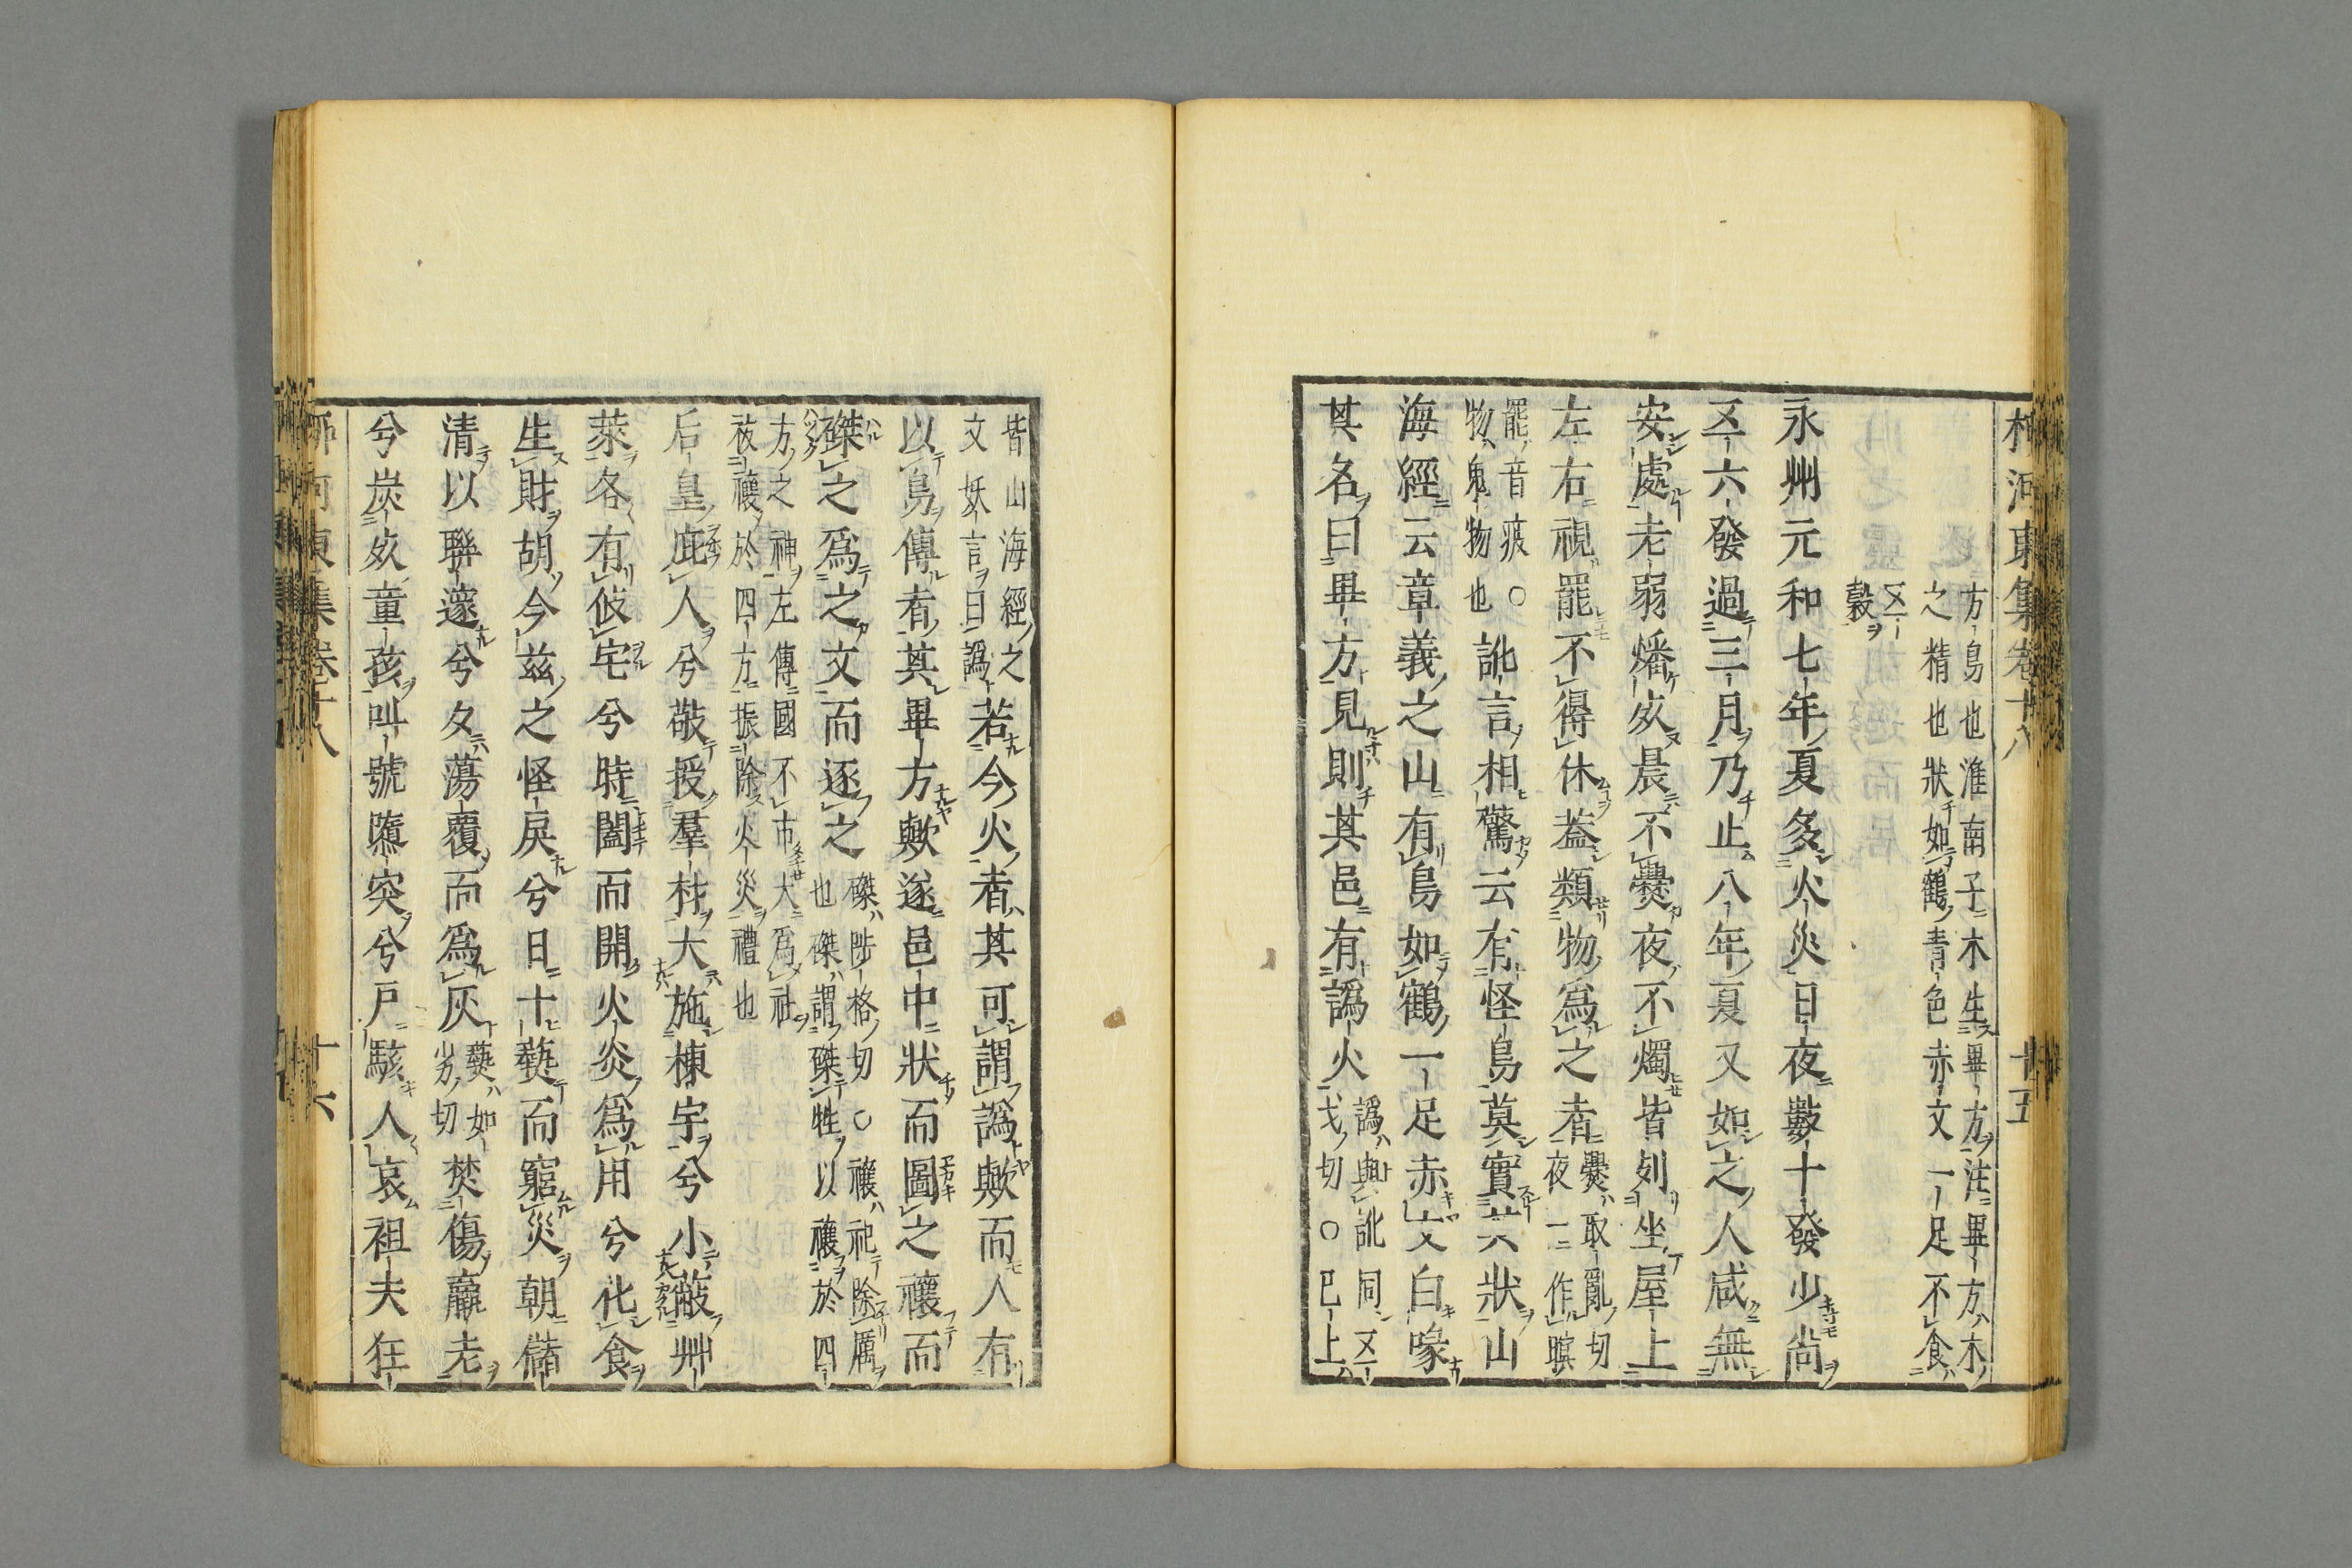 柳河東集卷十八 十五
方鳥也淮南子木生畢方注畢方木
之精也狀如鶴青色赤文一足不食
五
穀
永州元和七年夏多火災日夜數十發少尚
五六發過三月乃止八年夏又如之人咸無
安處老弱燔死晨不爨夜不燭皆列坐屋上
左右視罷不得休蓋類物爲之者
爨取亂切
夜一作暝
罷音疲○
物鬼物也
訛言相驚云有怪鳥莫實其狀山
海經云章義之山有鳥如鶴一足赤文白喙
其名曰畢方見則其邑有譌火
譌與訛同五
戈切○已上
皆山海經之
文妖言曰譌
若今火者其可謂譌歟而人有
以鳥傳者其畢方歟遂邑中狀而圖之禳而
磔之爲之文而逐之
磔陟格切○禳祀除厲
也磔謂磔牲以禳於四
方之神左傳國不市大爲社
祓禳於四方振除火災禮也
后皇庇人兮敬授羣材大施棟宇兮小蔽艸
萊各有攸宅兮時闔而開火炎爲用兮化食
生財胡今茲之怪戾兮日十爇而窮災朝儲
清以聯邃兮夕蕩覆而爲灰
爇如
劣切
焚傷羸老
兮炭死童孩叫號隳突兮戶駭人哀袒夫狂
柳河東集卷十八 十六